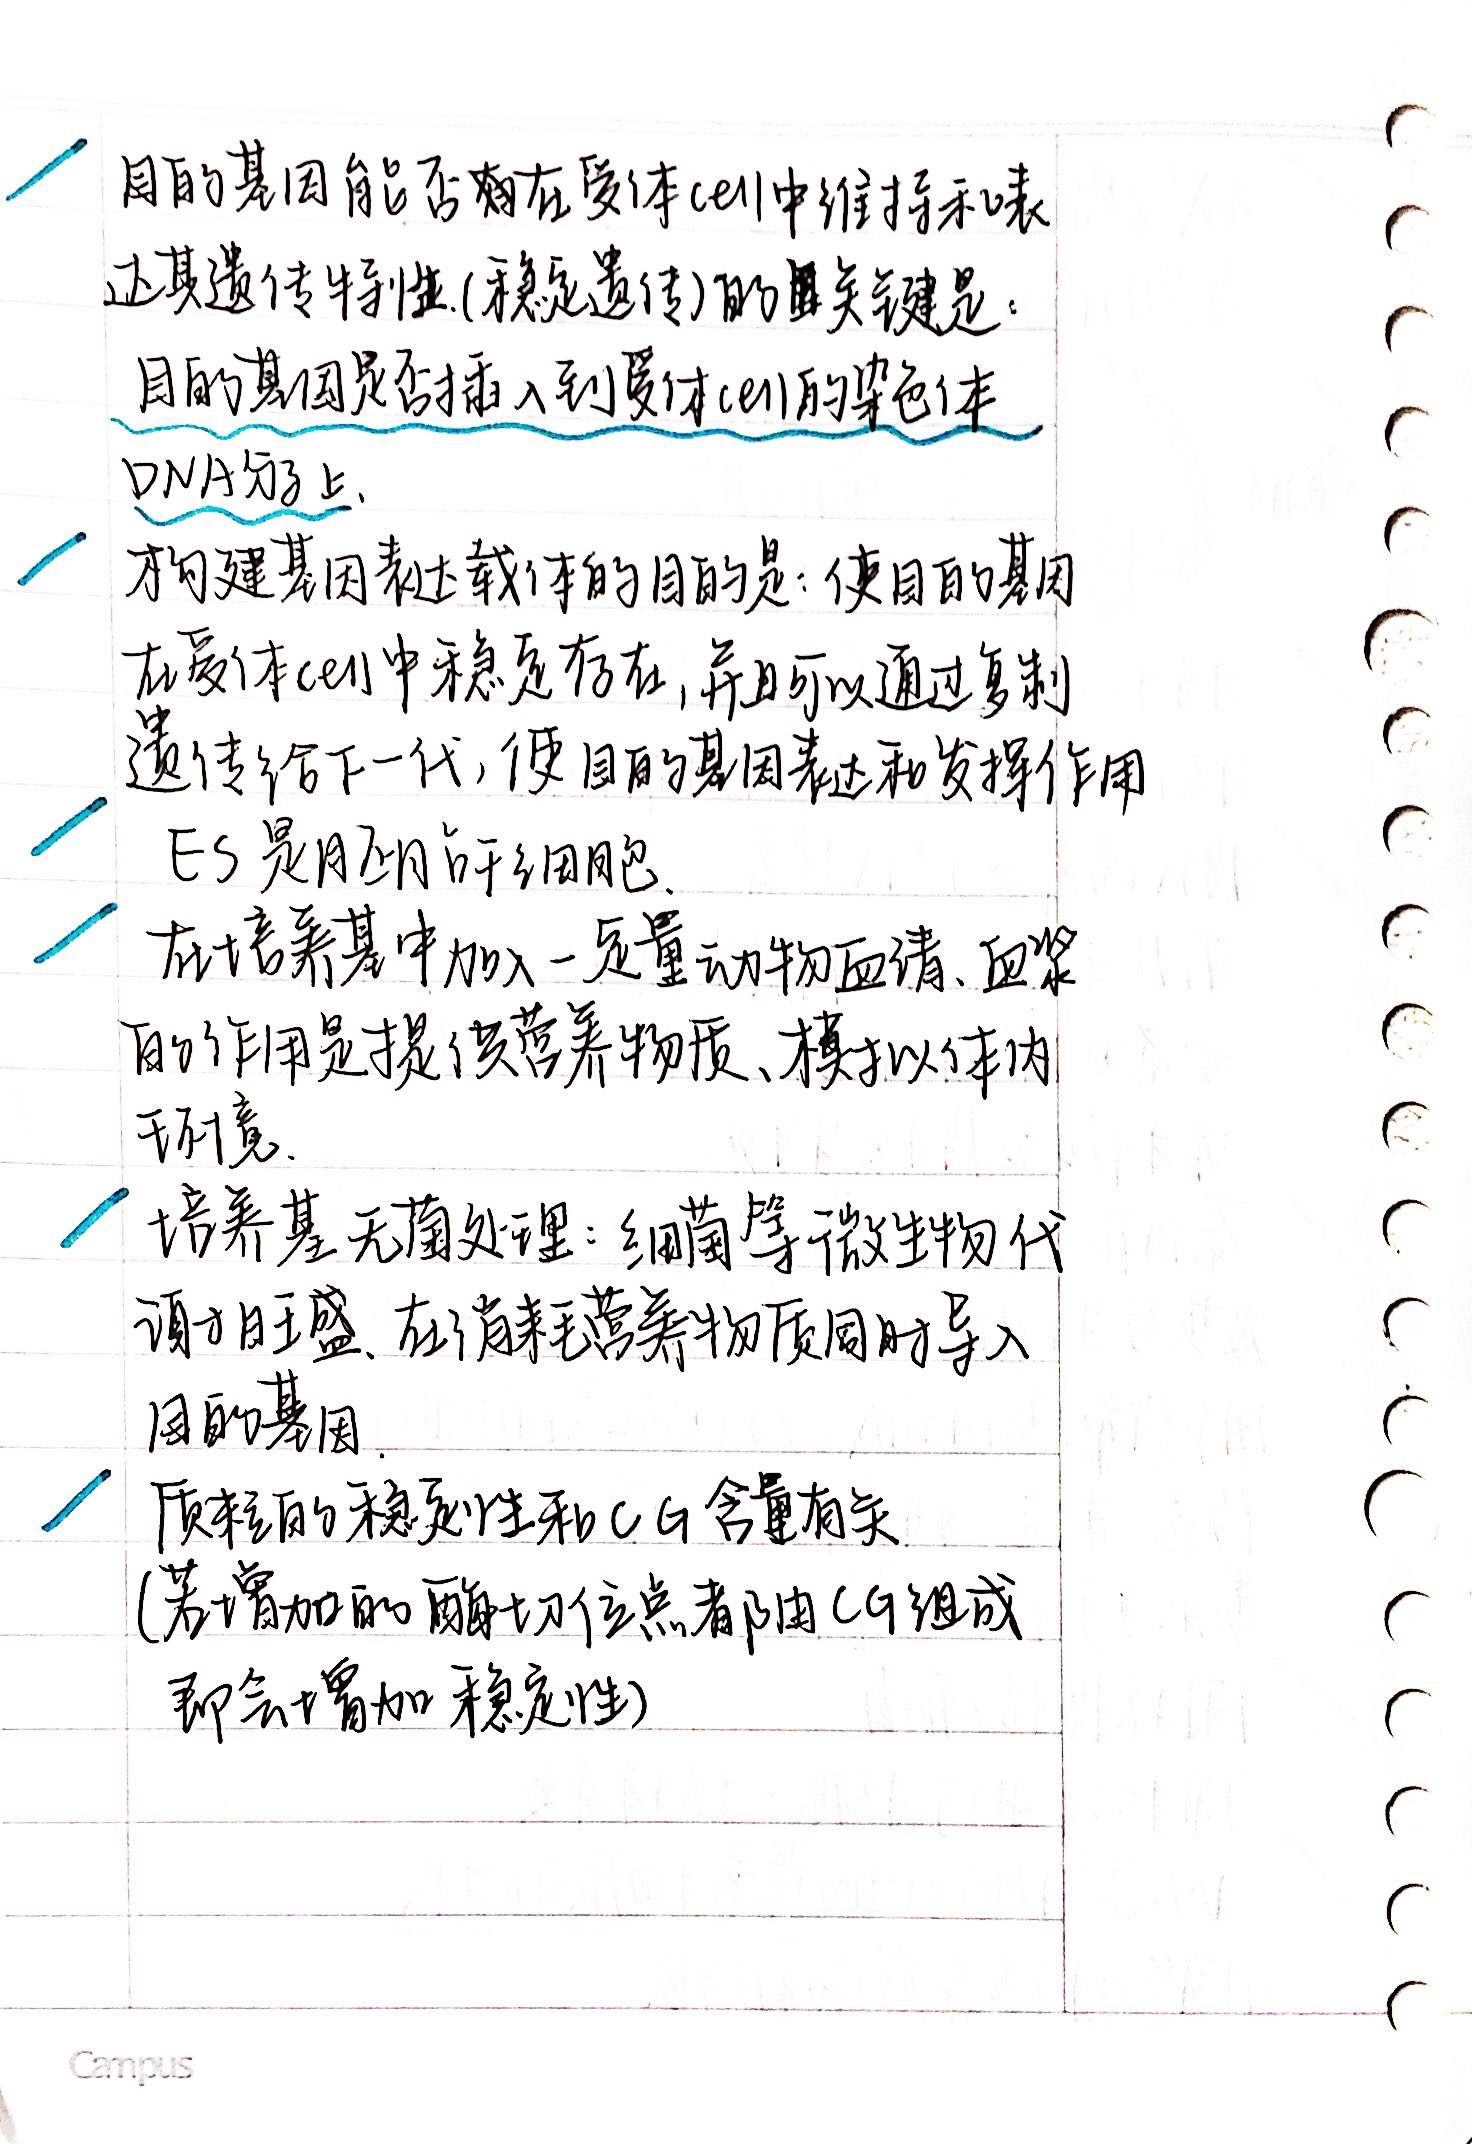 目的基因能否在受体cell中维持和表
达其遗传特性.(稳定遗传)的关键是:
目的基因是否插入到受体cell的染色体
DNA分子上、
构建基因表达载体的目的是:使目的基因
在受体cell中稳定存在,并且可以通过复制
遗传给下一代,使目的基因表达和发挥作用
ES是胚胎干细胞.
在培养基中加入一定量动物血清、血浆
的作用是提供营养物质、模拟体内
环境.
培养基无菌处理:细菌等微生物代
谢力旺盛、在消耗营养物质同时导入
目的基因.
质粒的稳定性和CG含量有关
(若增加的酶切位点都由CG组成
即会增加稳定性)
Campus